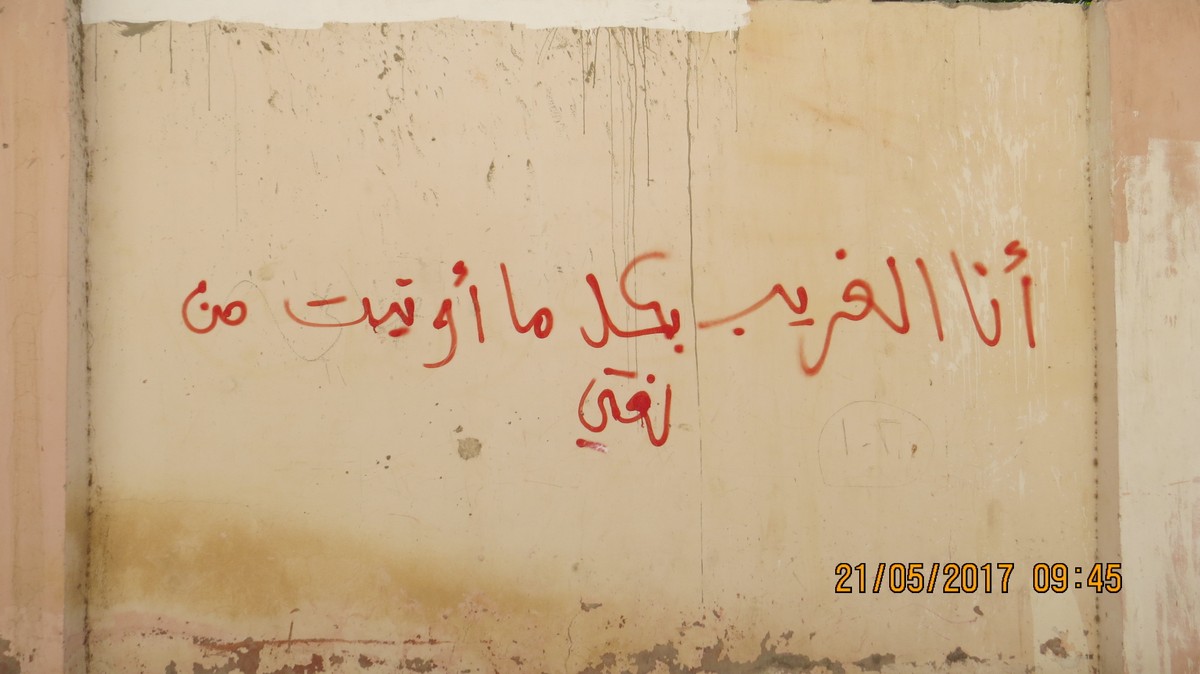 أنا الغريب بكل ما أوتيت من
لغتي
21/05/2017 09:45